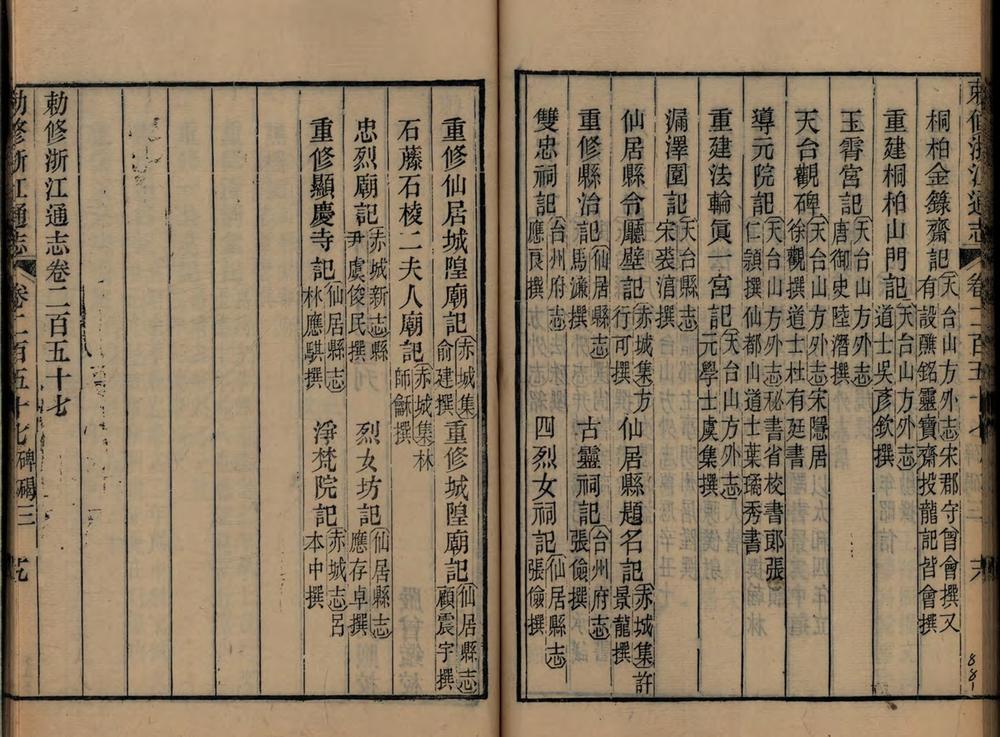 勅修浙江通志 卷二百五十七
桐柏金籙齋記 天台山方外志宋郡守曾會撰又有設醮銘靈寶齋投龍記皆會撰
重建桐柏山門記 天台山方外志道士吳彥欽撰
玉霄宮記 天台山方外志唐御史陸潛撰
天台觀碑 天台山方外志宋隱居徐觀撰道士杜有廷書
導元院記 天台山方外志秘書省校書郎張仁頴撰仙都山道士葉璚秀書
重建法輪眞一宮記 天台山方外志元學士虞集撰
漏澤園記 天台縣志宋裘渷撰
仙居縣令廳壁記 赤城集方行可撰 仙居縣題名記 赤城集許景龍撰
重修縣治記 仙居縣志馬濂撰 古靈祠記 台州府志張儉撰
雙忠祠記 台州府志應良撰 四烈女祠記 仙居縣志張儉撰
重修仙居城隍廟記 赤城集俞建撰 重修城隍廟記 仙居縣志顧震宇撰
石藤石棱二夫人廟記 赤城集林師龢撰
忠烈廟記 赤城新志縣尹虞俊民撰 烈女坊記 仙居縣志應存卓撰
重修顯慶寺記 仙居縣志林應騏撰 淨梵院記 赤城志呂本中撰
勅修浙江通志卷二百五十七
勅修浙江通志 卷二百五十七 碑碣三
881